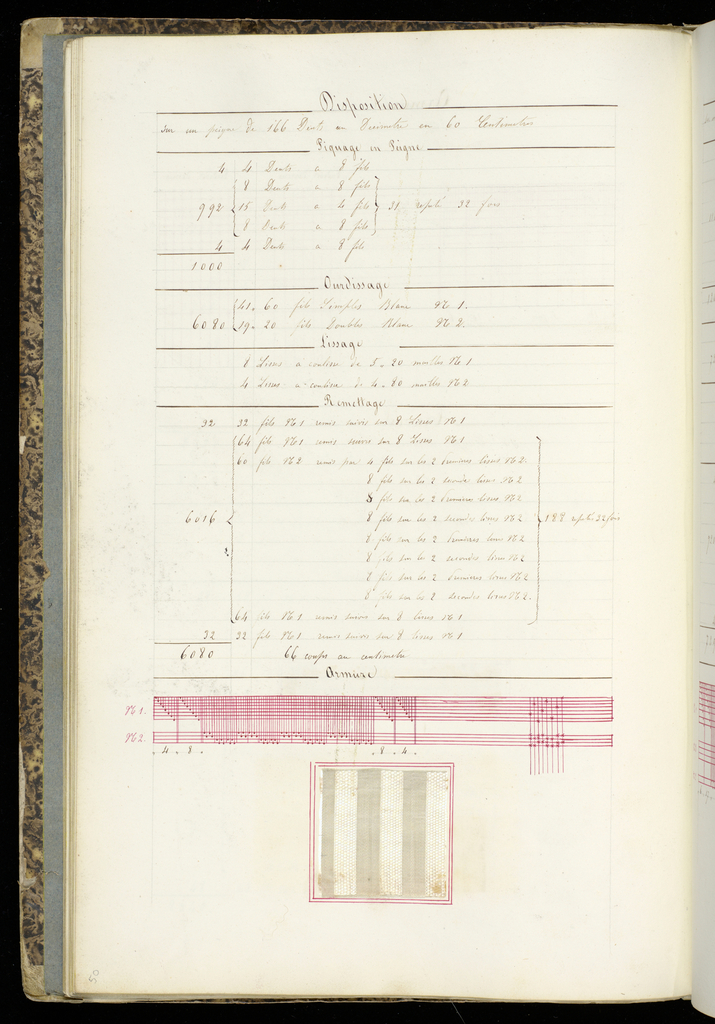 Disposition
sur un peigne de 166 Dents au Décimètre en 60 Centimètres
Piquage en Peigne
4 4 Dents a 8 fils
8 Dents a 8 fils
992 15 Dents a 4 fils 31 répété 32 fois
8 Dents a 8 fils
4 4 Dents a 8 fils
1000
Ourdissage
41. 60 fils Simples Blanc No 1.
6080 19. 20 fils Doubles Blanc No 2.
Lissage
8 Lisses a coulisse de 5. 20 mailles No 1
4 Lisses a coulisse de 4. 80 mailles No 2
Remettage
32 32 fils No 1 remis suivis sur 8 Lisses No 1
64 fils No 1 remis suivis sur 8 Lisses No 1
60 fils No 2 remis par 4 fils sur les 2 premières lisses No 2.
8 fils sur les 2 secondes lisses No 2
8 fils sur les 2 premières lisses No 2
6016 8 fils sur les 2 secondes lisses No 2 188 répétés 32 fois
8 fils sur les 2 premières lisses No 2
8 fils sur les 2 secondes lisses No 2
8 fils sur les 2 premières lisses No 2
8 fils sur les 2 secondes lisses No 2.
64 fils No 1 remis suivis sur 8 lisses No 1
32 32 fils No 1 remis suivis sur 8 lisses No 1
6080 66 coups au centimètre
Armure
No 1.
No 2.
. 4 . 8 . . 8 . 4 .
50